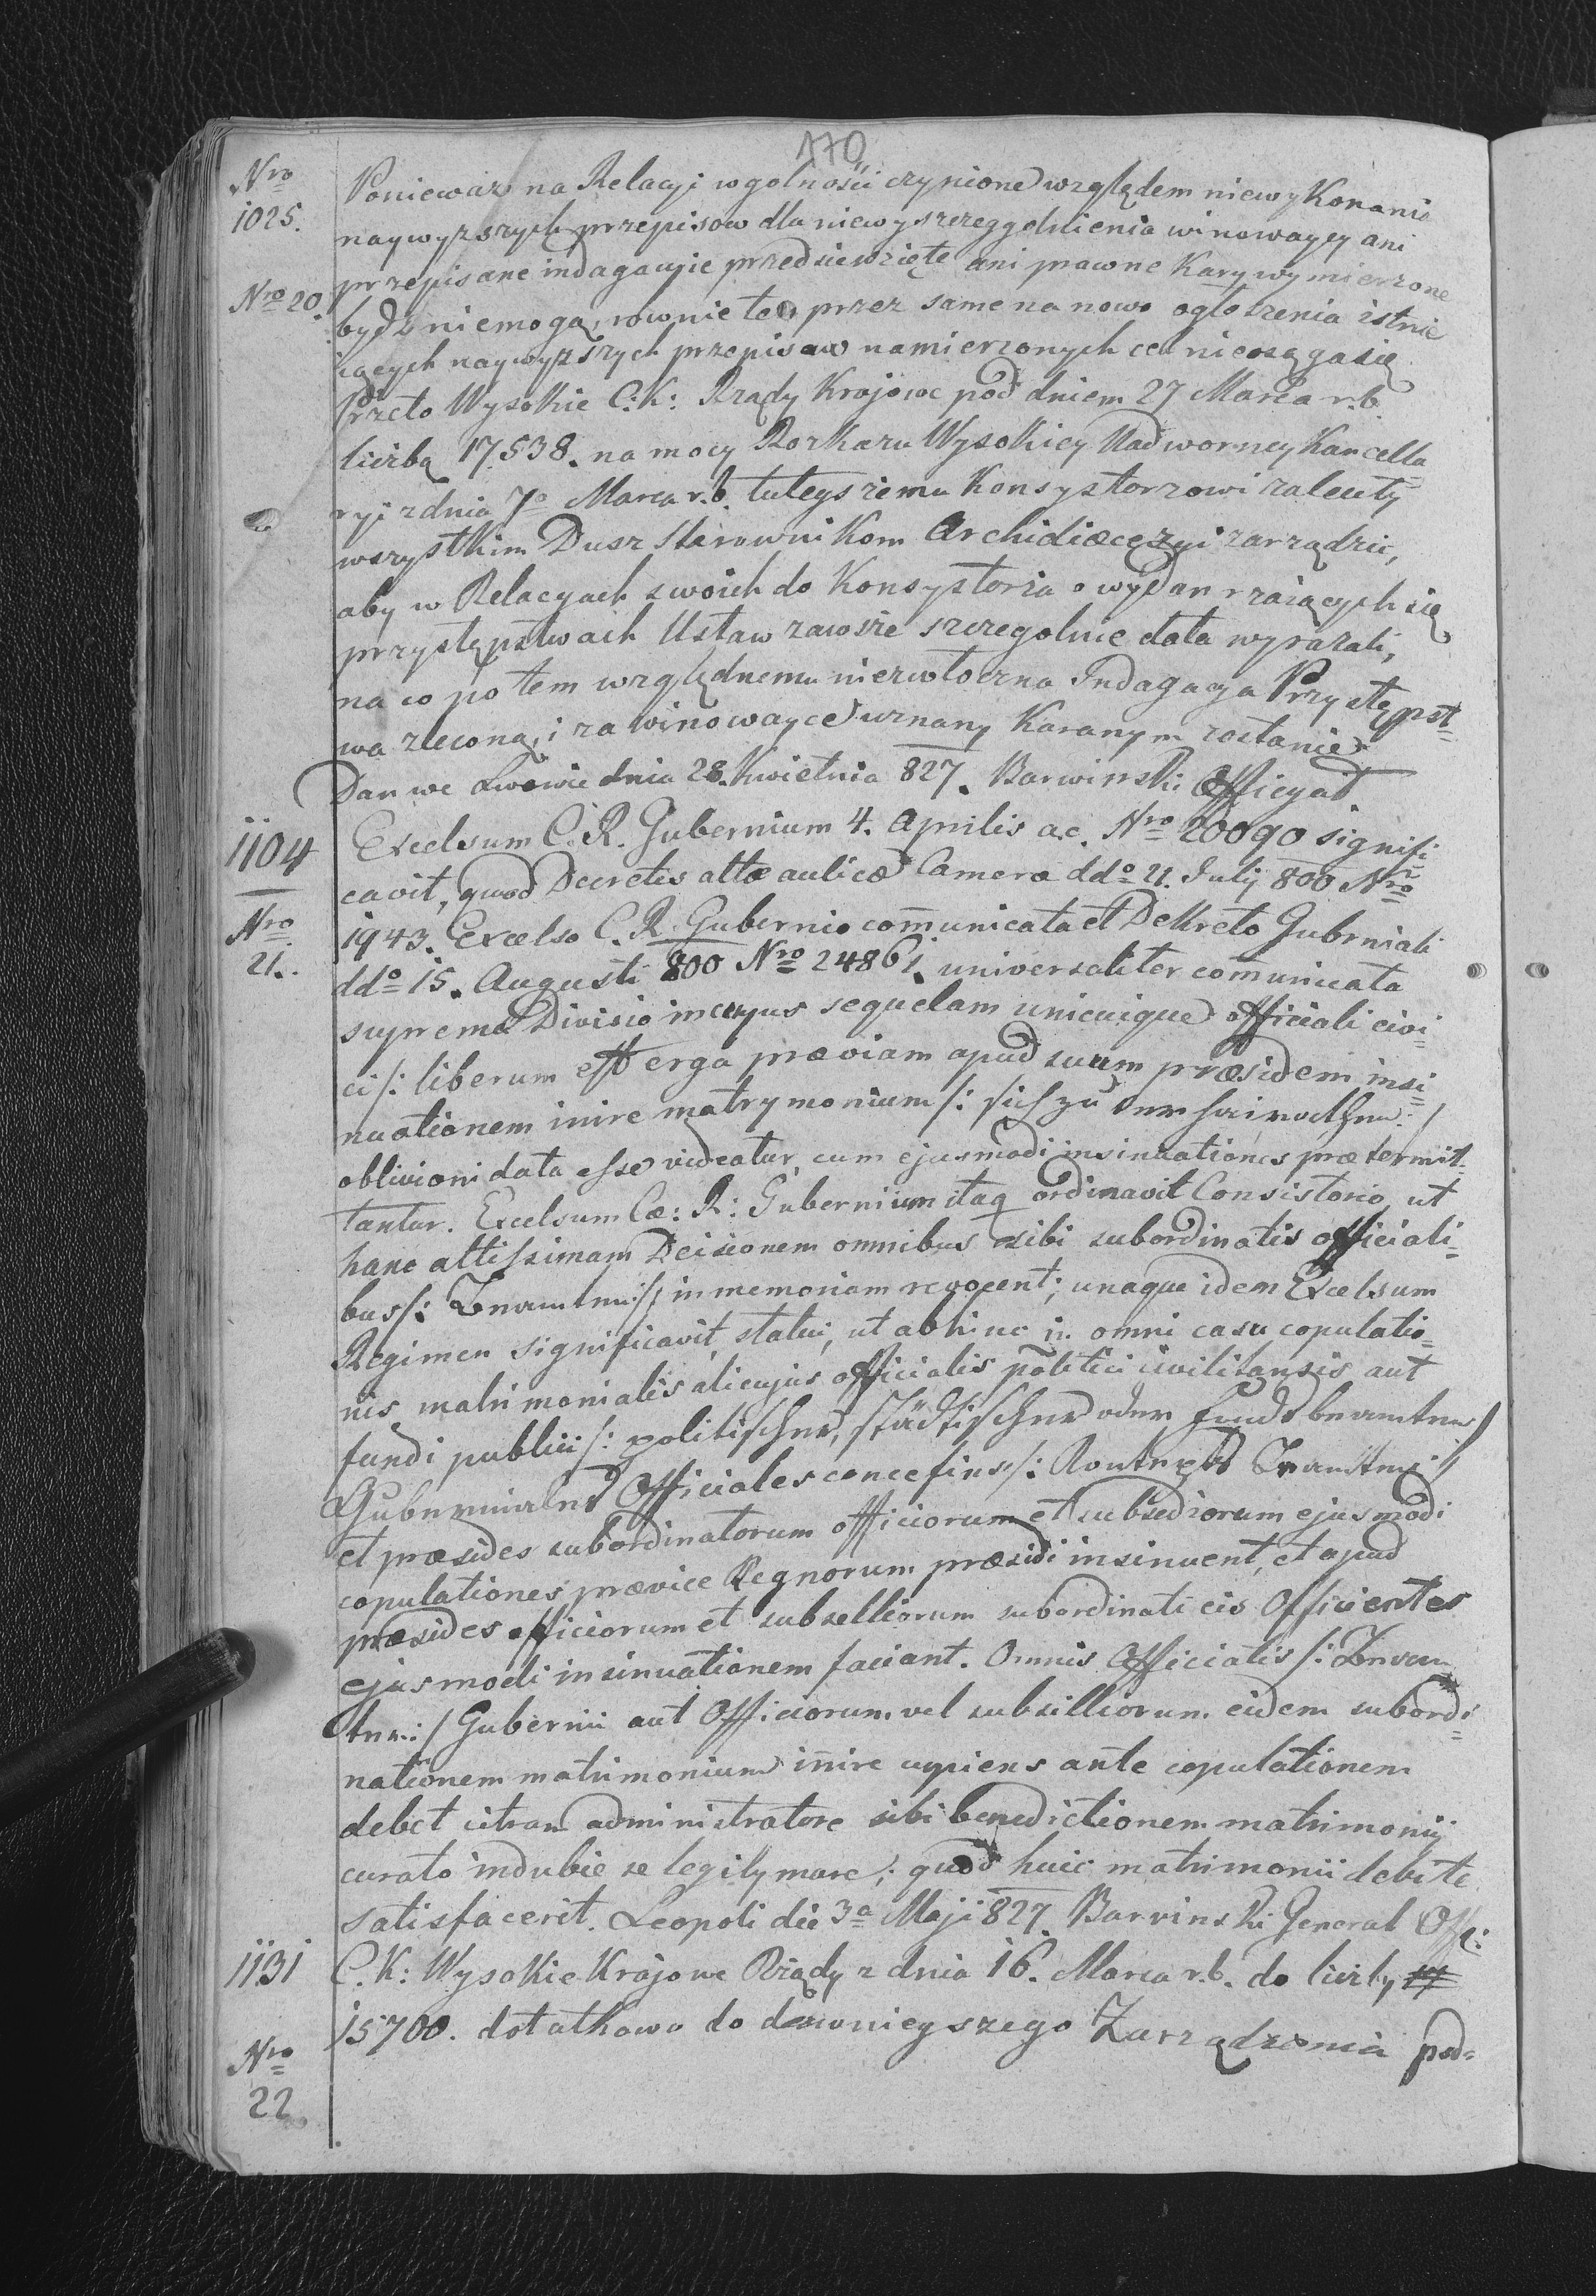 170
Nro
1025.
Nro 20.
Ponieważ na Relacyi wgolności czynione względem niewykonanie
naywyzszych przepisow dla niewyszczeggulnienia winowaycy ani
przepisane indagacyie przedsiewzięte ani prawne Kary wymierzone
bydz niemogą, rownie też przez same na nowo ogłoszenia istnie
iących naywyzszych przepisaw namierzonych cel nieosągasię
Przeto Wysokie C: K: Rządy Krajowe pod dniem 27 Marca r. b.
liczbą 17538. na mocy Rozkazu Wysokiey Nadworney Kancella
ryi z dnia 7o Marca r. b. tuteyszemu Konsystorzowi zaleciły
wszystkim Dusz Sterownikom Archidiæcezyi zarządzić,
aby w Relacyach swoich do Konsystorza o wydarzaiących się
przystępstwach Ustaw zawsze szczegolnie data wyrazali,
na co potem względnemu niezwłoczna Indagacya Przystępst=
wa zlecona, i za winowayce uznany Karanym zostanie
Dan we Lwowie dnia 28. Kwietnia 827. Barwinski Officyał
1104
Nro
21.
Excelsum C. R. Gubernium 4. Aprilis a.c. Nro 20090 signifi=
cavit, quod Decretis altæ aulicæ Cameræ ddo 21. Julij 800 Nro
1943. Excelso C. R. Gubernio com̄unicata et Dekreto Gubrniali
ddo 15. Augusti 800 Nro 24861. universaliter com̄unicata
suprema Divisio in cujus sequelam unicuique officiali civi=
ci /: liberum est erga præviam apud suum præsidem insi=
nuationem inire matrymonium /: sich zu verheirathen :/
oblivioni data esse videatur, cum ejusmodi insinuationes prætermit=
tantur. Excelsum Cæ: R: Gubernium itaq ordinavit Consistorio, ut
hanc altissimam Decisionem omnibus sibi subordinatis officiali=
bus /: Beamten :/ in memoriam revocent; unaque idem Excelsum
Regimen significavit, statui, ut abhinc in omni casu copulatio=
nis matrimonialis alicujus officialis politici civilitensis aut
fundi publici /: politischer, städtischer oder Fondsbeamten :/
Gubernialer Officiales concefins /: Beamten :/
et præsides subordinatorum officiorum et subsediorum ejusmodi
copulationes prævice Regnorum præsidi insinuent, et apud
præsides officiorum et subselliorum subordinati eis Officientes
ejusmodi insinuationem faciant. Omnis Officialis /: Beam
ter :/ Gubernii aut Officiorum vel subsilliorum eidem subordi=
nationem matrimonium inire cupiens ante copulationem
debet citram administratore sibi benedictionem matrimonij
curato indubie se legitymare; quod huic matrimonii debite
satisfacerit. Leopoli die 3a Maji 827. Barvinski General Offi:
1131
Nro
22
C. K: Wysokie Krajowe Rządy z dnia 16. Marca r. b. do liczby
15700. dotatkowo do dawnieyszego Zarządzenia pod=